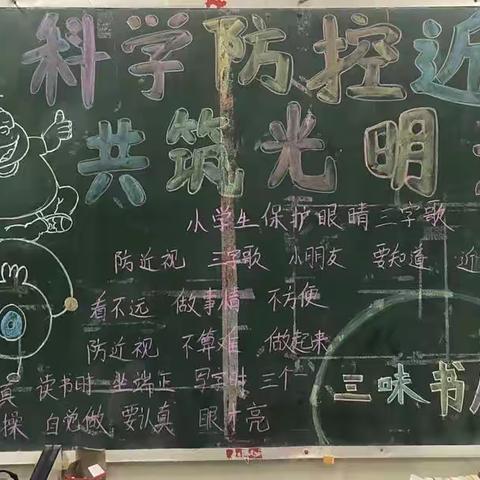 科学防控近
共筑光明
小学生保护眼睛三字歌
防近视 三字歌 小朋友 要知道 近
看不远 做事情 不方便
防近视 不算难 做起来
真 读书时 坐端正 写字时 三个一
操 自觉做 要认真 眼才亮
三味书屋